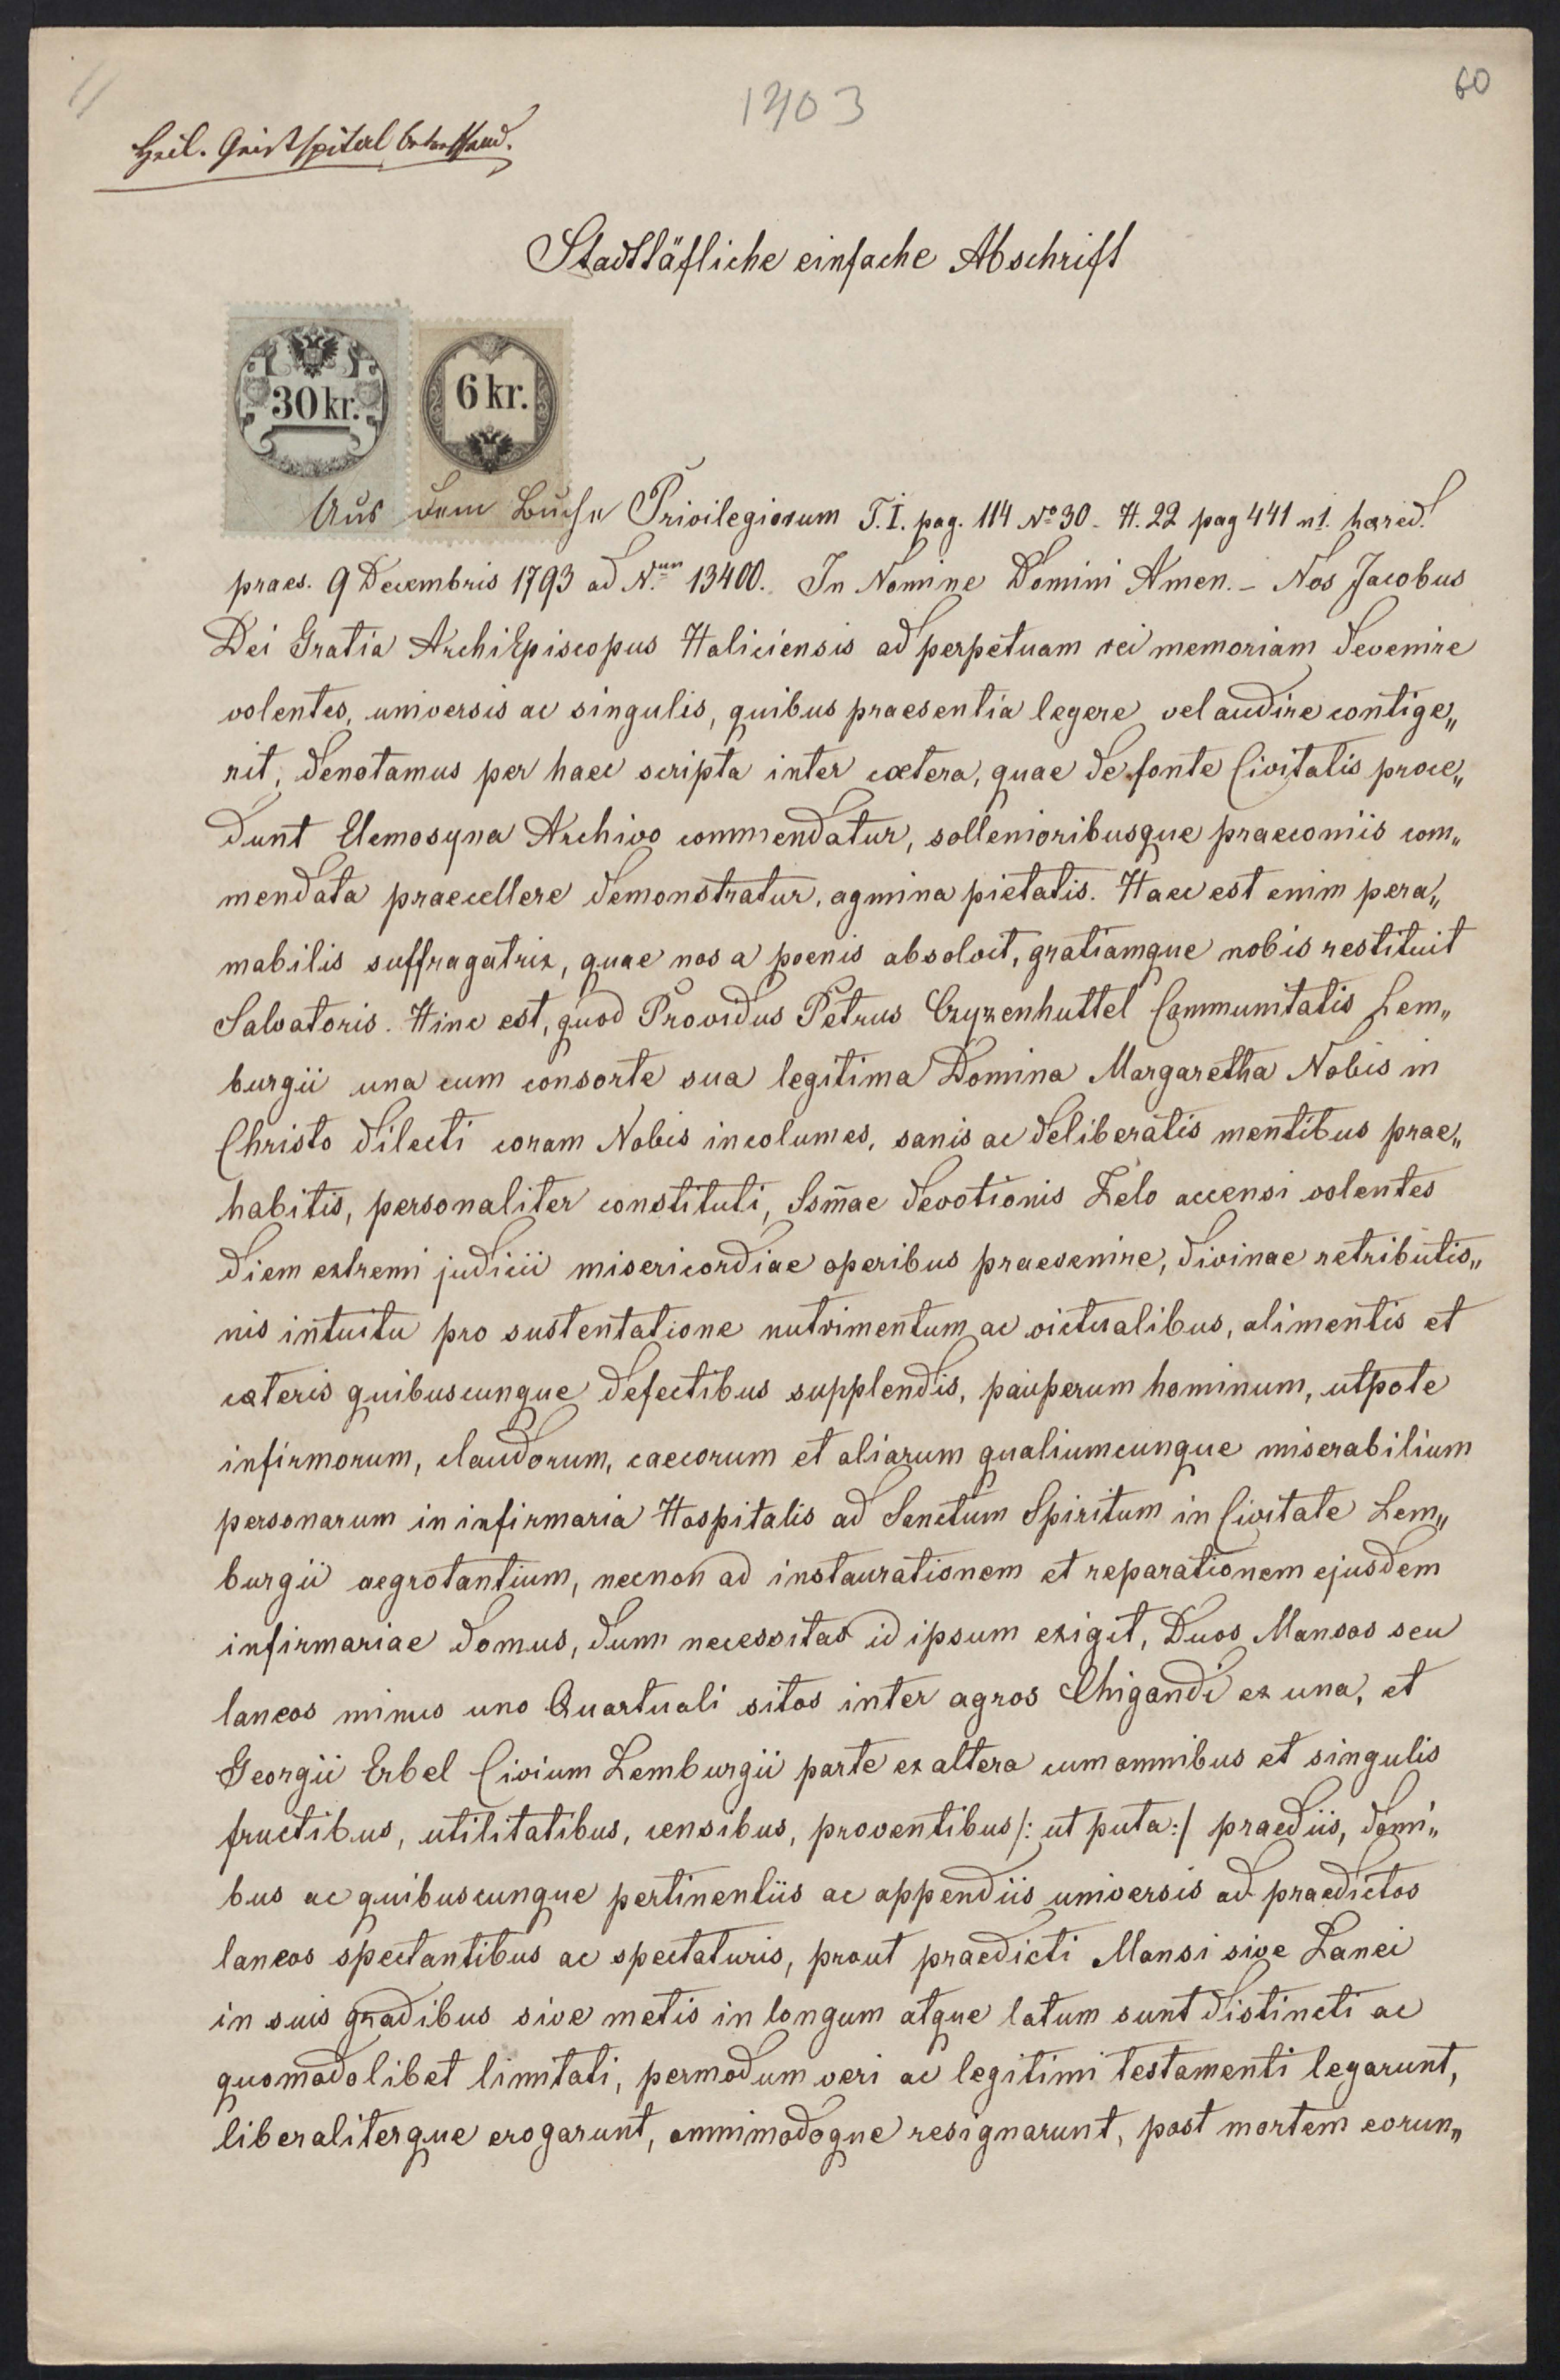 1403
60
Heil. Geistspital betreffend.
Stadttäfliche einfache Abschrift
30 kr.
6 kr.
Aus dem Buche Privilegiorum T. I. pag. 114 No 30 - H. 22 pag 441 n 1. haered.
praes. 9 Decembris 1793 ad N.um 13400. In Nomine Domini Amen. - Nos Jacobus
Dei Gratia ArchiEpiscopus Haliciensis ad perpetuam rei memoriam devenire
volentes, universis ac singulis, quibus praesentia legere vel audire contige„
rit, denotamus per haec scripta inter caetera, quae de fonte Civitatis proce„
dunt Elemosyna Archivo commendatur, sollenioribusque praeconiis com„
mendata praecellere demonstratur, agmina pietatis. Haec est enim pera„
mabilis suffragatrix, quae nos a poenis absolvit, gratiamque nobis restituit
Salvatoris. Hinc est, quod Providus Petrus Czyzenhuttel Communitatis Lem„
burgii una cum consorte sua legitima Domina Margaretha Nobis in
Christo dilecti coram Nobis incolumes, sanis ac deliberatis mentibus prae„
habitis, personaliter constituti, Ssmae devotionis Zelo accensi volentes
diem extremi judicii misericordiae operibus praevenire, divinae retributio„
nis intuitu pro sustentatione nutrimentum ac victualibus, alimentis et
caeteris quibuscunque defectibus supplendis, pauperum hominum, utpote
infirmorum, claudorum, caecorum et aliarum qualiumcunque miserabilium
personarum in infirmaria Hospitalis ad Sanctum Spiritum in Civitate Lem„
burgii aegrotantium, necnon ad instaurationem et reparationem ejusdem
infirmariae domus, dum necessitas id ipsum exigit, Duos Mansos seu
laneos minus uno Quartuali sitos inter agros Chigandi ex una, et
Georgii Erbel Civium Lemburgii parte ex altera cum omnibus et singulis
fructibus, utilitatibus, censibus, proventibus /: ut puta :/ praediis, domi„
bus ac quibuscunque pertinentiis ac appendiis universis ad praedictos
laneos spectantibus ac spectaturis, prout praedicti Mansi sive Lanei
in suis gradibus sive metis in longum atque latum sunt distincti ac
quomodolibet limitati, permodum veri ac legitimi testamenti legarunt,
liberaliterque erogarunt, omnimodoque resignarunt, post mortem eorun„